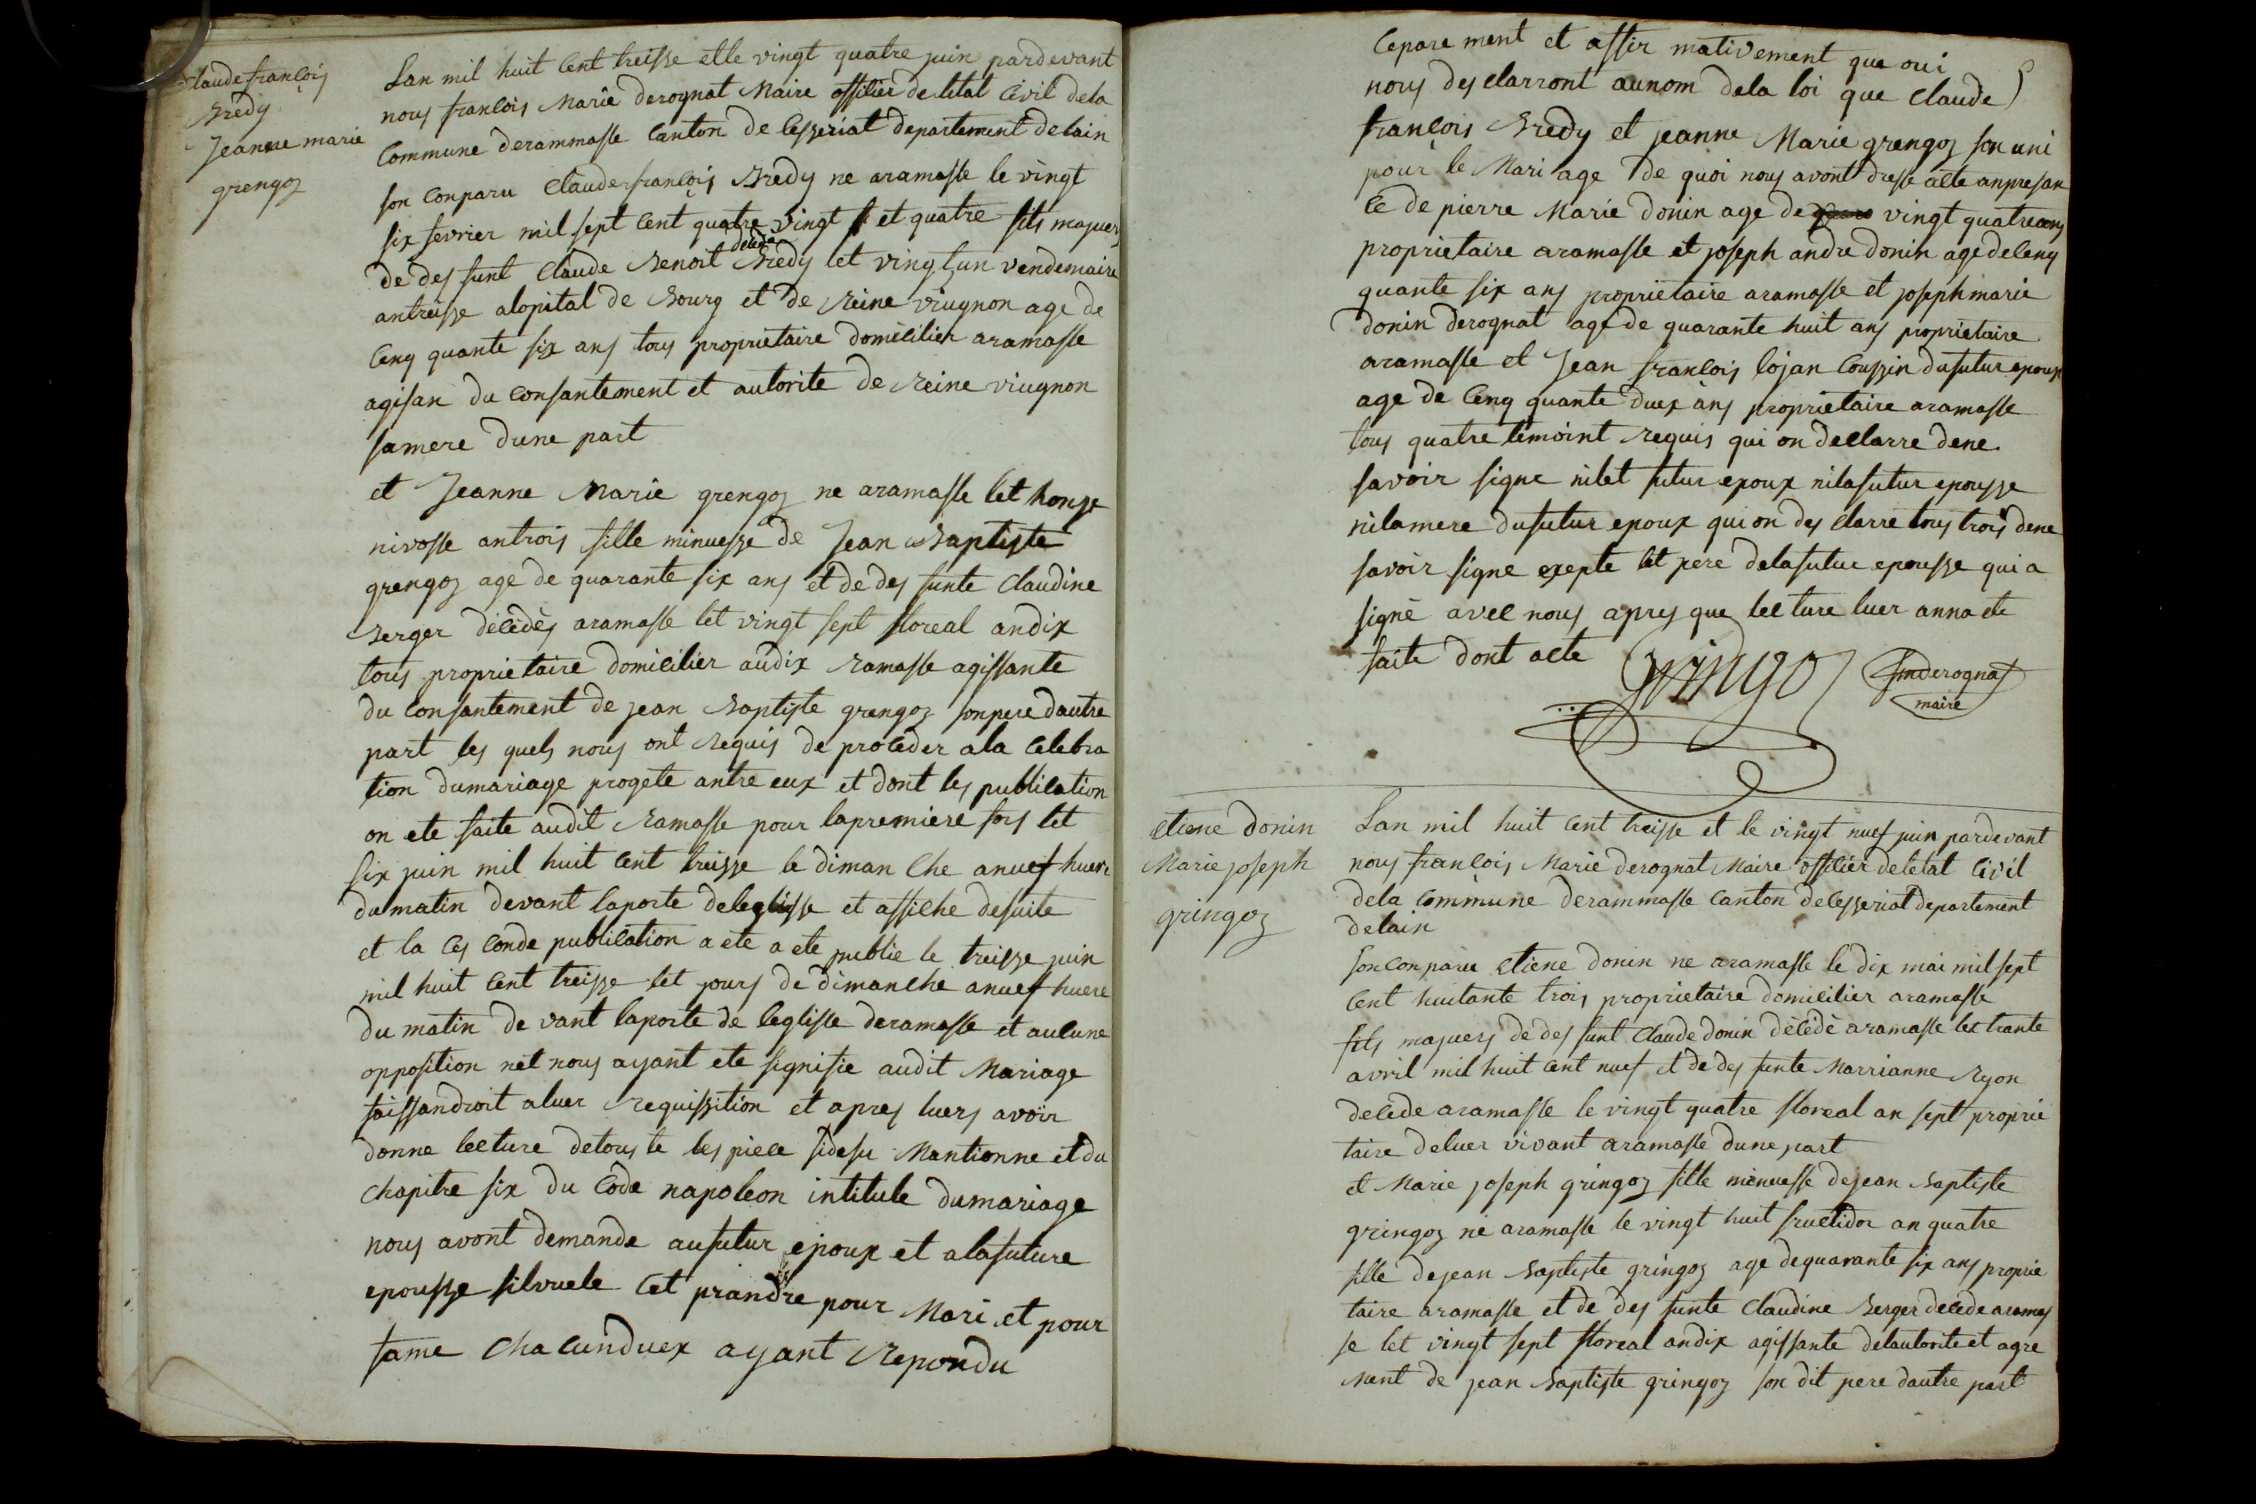 Claude françois
Bredy
Jeanne marie
grengoz
Lan mil huit Cent treisse et le vingt quatre juin pardevant
nous françois Marie derognat Maire offilier de letat Civil dela
Commune derammasse Canton de Cesseriat departement delain
son Conparu Claudefrançois Bredy ne aramasse le vingt
six fevrier mil sept Cent quatre vingt et quatre fils majuers
de des funt Claude Benoit Bredy décédé let vingt un vendemaire
antreisse alopital de Bourg et de Reine viugnon age de
Cenq quante six ans tous proprietaire domicilier aramasse
agisan du Consantement et autorite de Reine viugnon
samere dune part
et Jeanne Marie grengoz ne aramasse let honze
nivosse antrois fille minuesse de Jean Baptiste
grengoz age de quarante six ans et de des funte Claudine
Berger décédés aramasse let vingt sept floreal andix
tous proprietaire domicilier audix Ramasse agissante
du Consantement de jean Baptiste grengoz son pere dautre
part les quels nous ont Requis de proceder ala Celebra
tion dumariage progete antre eux et dont les publication
on ete faite audit Ramasse pour lapremiere fois let
six juin mil huit Cent treisse le diman Che anuef huere
dumatin devant laporte deleglisse et affiche desuite
et la Ces Conde publication a ete a ete publie le treisse juin
mil huit Cent treisse let jours de dimanche anuef huere
du matin de vant laporte de leglisse deramasse et aucune
opposition net nous ayant ete signifie audit Mariage
faissandroit aluer Requissition et apres luers avoir
donne lecture detous te les piece sidesu Mantionne et du
Chapitre six du Code napoleon intitule dumariage
nous avont demande aufutur epoux et alafuture
epousse silvuele Cet prandre pour Mari et pour
fame Chacunduex ayant Repondu
Cepare ment et affir mativement que oui
nous des clarront aunom dela loi que Claude
françois Bredy et jeanne Marie grengoz son uni
pour le Mari age de quoi nous avont dresse acte anpresan
Ce de pierre Marie donin age de vingt quatre ans
proprietaire aramasse et joseph andre donin age de Cenq
quante six ans proprietaire aramasse et joseph marie
donin derognat age de quarante huit ans proprietaire
aramasse et Jean françois lojan Coussin dufutur epoux
age de Cenq quante duex ans proprietaire aramasse
tous quatre temoint Requis qui on declarre dene
savoir signe nilet futur epoux nilafutur epousse
nilamere dufutur epoux qui on des clarre tous trois dene
savoir signe exepte let pere delafutur epousse qui a
signé avec nous apres que lecture luer anna ete
faite dont acte gringo fmderognat
maire
Etiene donin
Marie joseph
gringoz
Lan mil huit Cent treisse et le vingt nuef juin pardevant
nous françois Marie derognat Maire offilier deletat Civil
dela Commune derammasse Canton deCesseriat departement
delain
son Conparu Etiene donin ne aramasse le dix mai mil sept
Cent huitante trois proprietaire domicilier aramasse
fils majuers de des funt Claude donin décédé aramasse let trante
avril mil huit Cent nuef et de des funte Marrianne Ryon
decede aramasse le vingt quatre floreal an sept proprie
taire deluer vivant aramasse dune part
et Marie joseph gringoz fille minuesse dejean Baptiste
gringoz né aramasse le vingt huit fructidor an quatre
fille dejean Baptiste gringoz age dequarante six ans proprie
taire aramasse et de des funte Claudine Berger decede aramas
se let vingt sept floreal andix agissante delautorite et agre
ment de jean Baptiste gringoz son dit pere dautre part